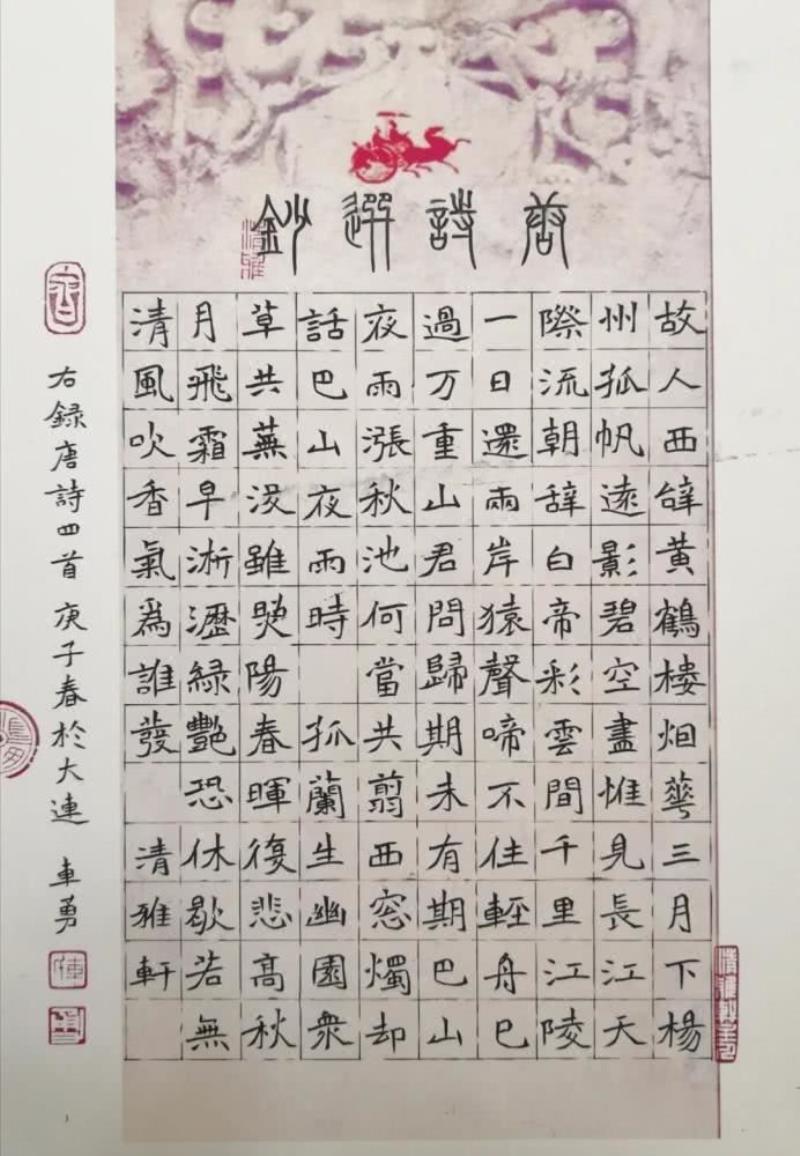 唐詩選鈔
故人西辝黄鶴楼烟蕐三月下楊
州孤帆遠影碧空盡惟見長江天
際流朝辞白帝彩雲間千里江陵
一日還兩岸猿聲啼不住輕舟已
過万重山君問歸期未有期巴山
夜雨漲秋池何當共翦西窓燭却
話巴山夜雨時 孤蘭生幽園衆
草共蕪没雖照陽春暉復悲高秋
月飛霜早淅瀝緑艷恐休歇若無
清風吹香氣為誰發 清雅軒
右録唐詩四首 庚子春於大連 車勇